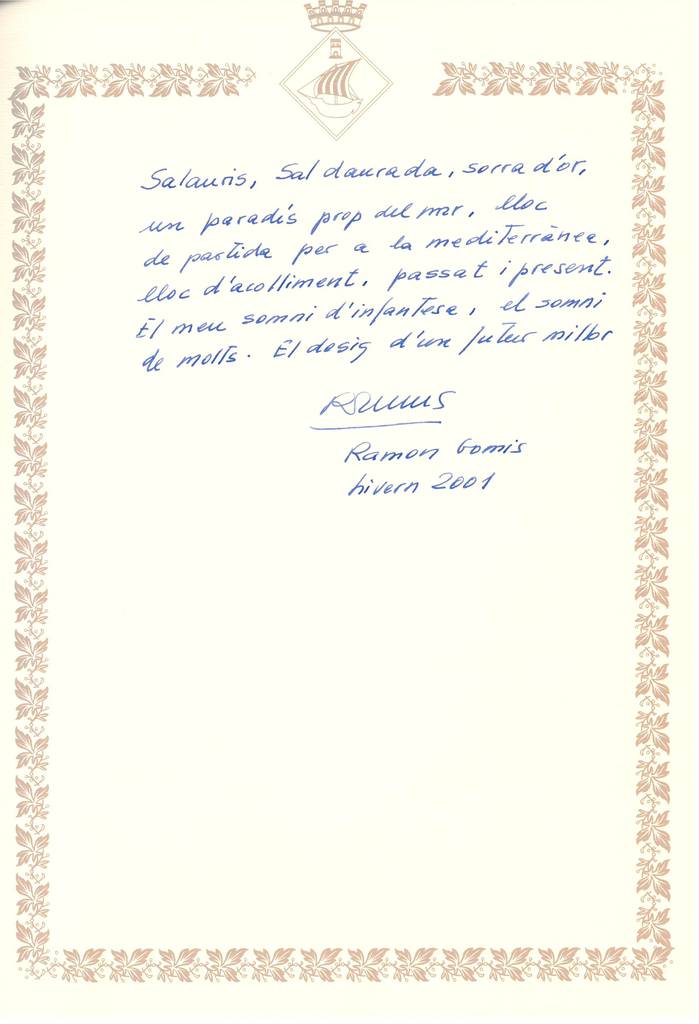 Salauris, Sal daurada, sorra d'or,
un paradís prop del mar, lloc
de partida per a la mediterrànea,
lloc d'acolliment, passat i present.
El meu somni d'infantesa, el somni
de molts. El desig d'un futur millor
Ramon Gomis
hivern 2001